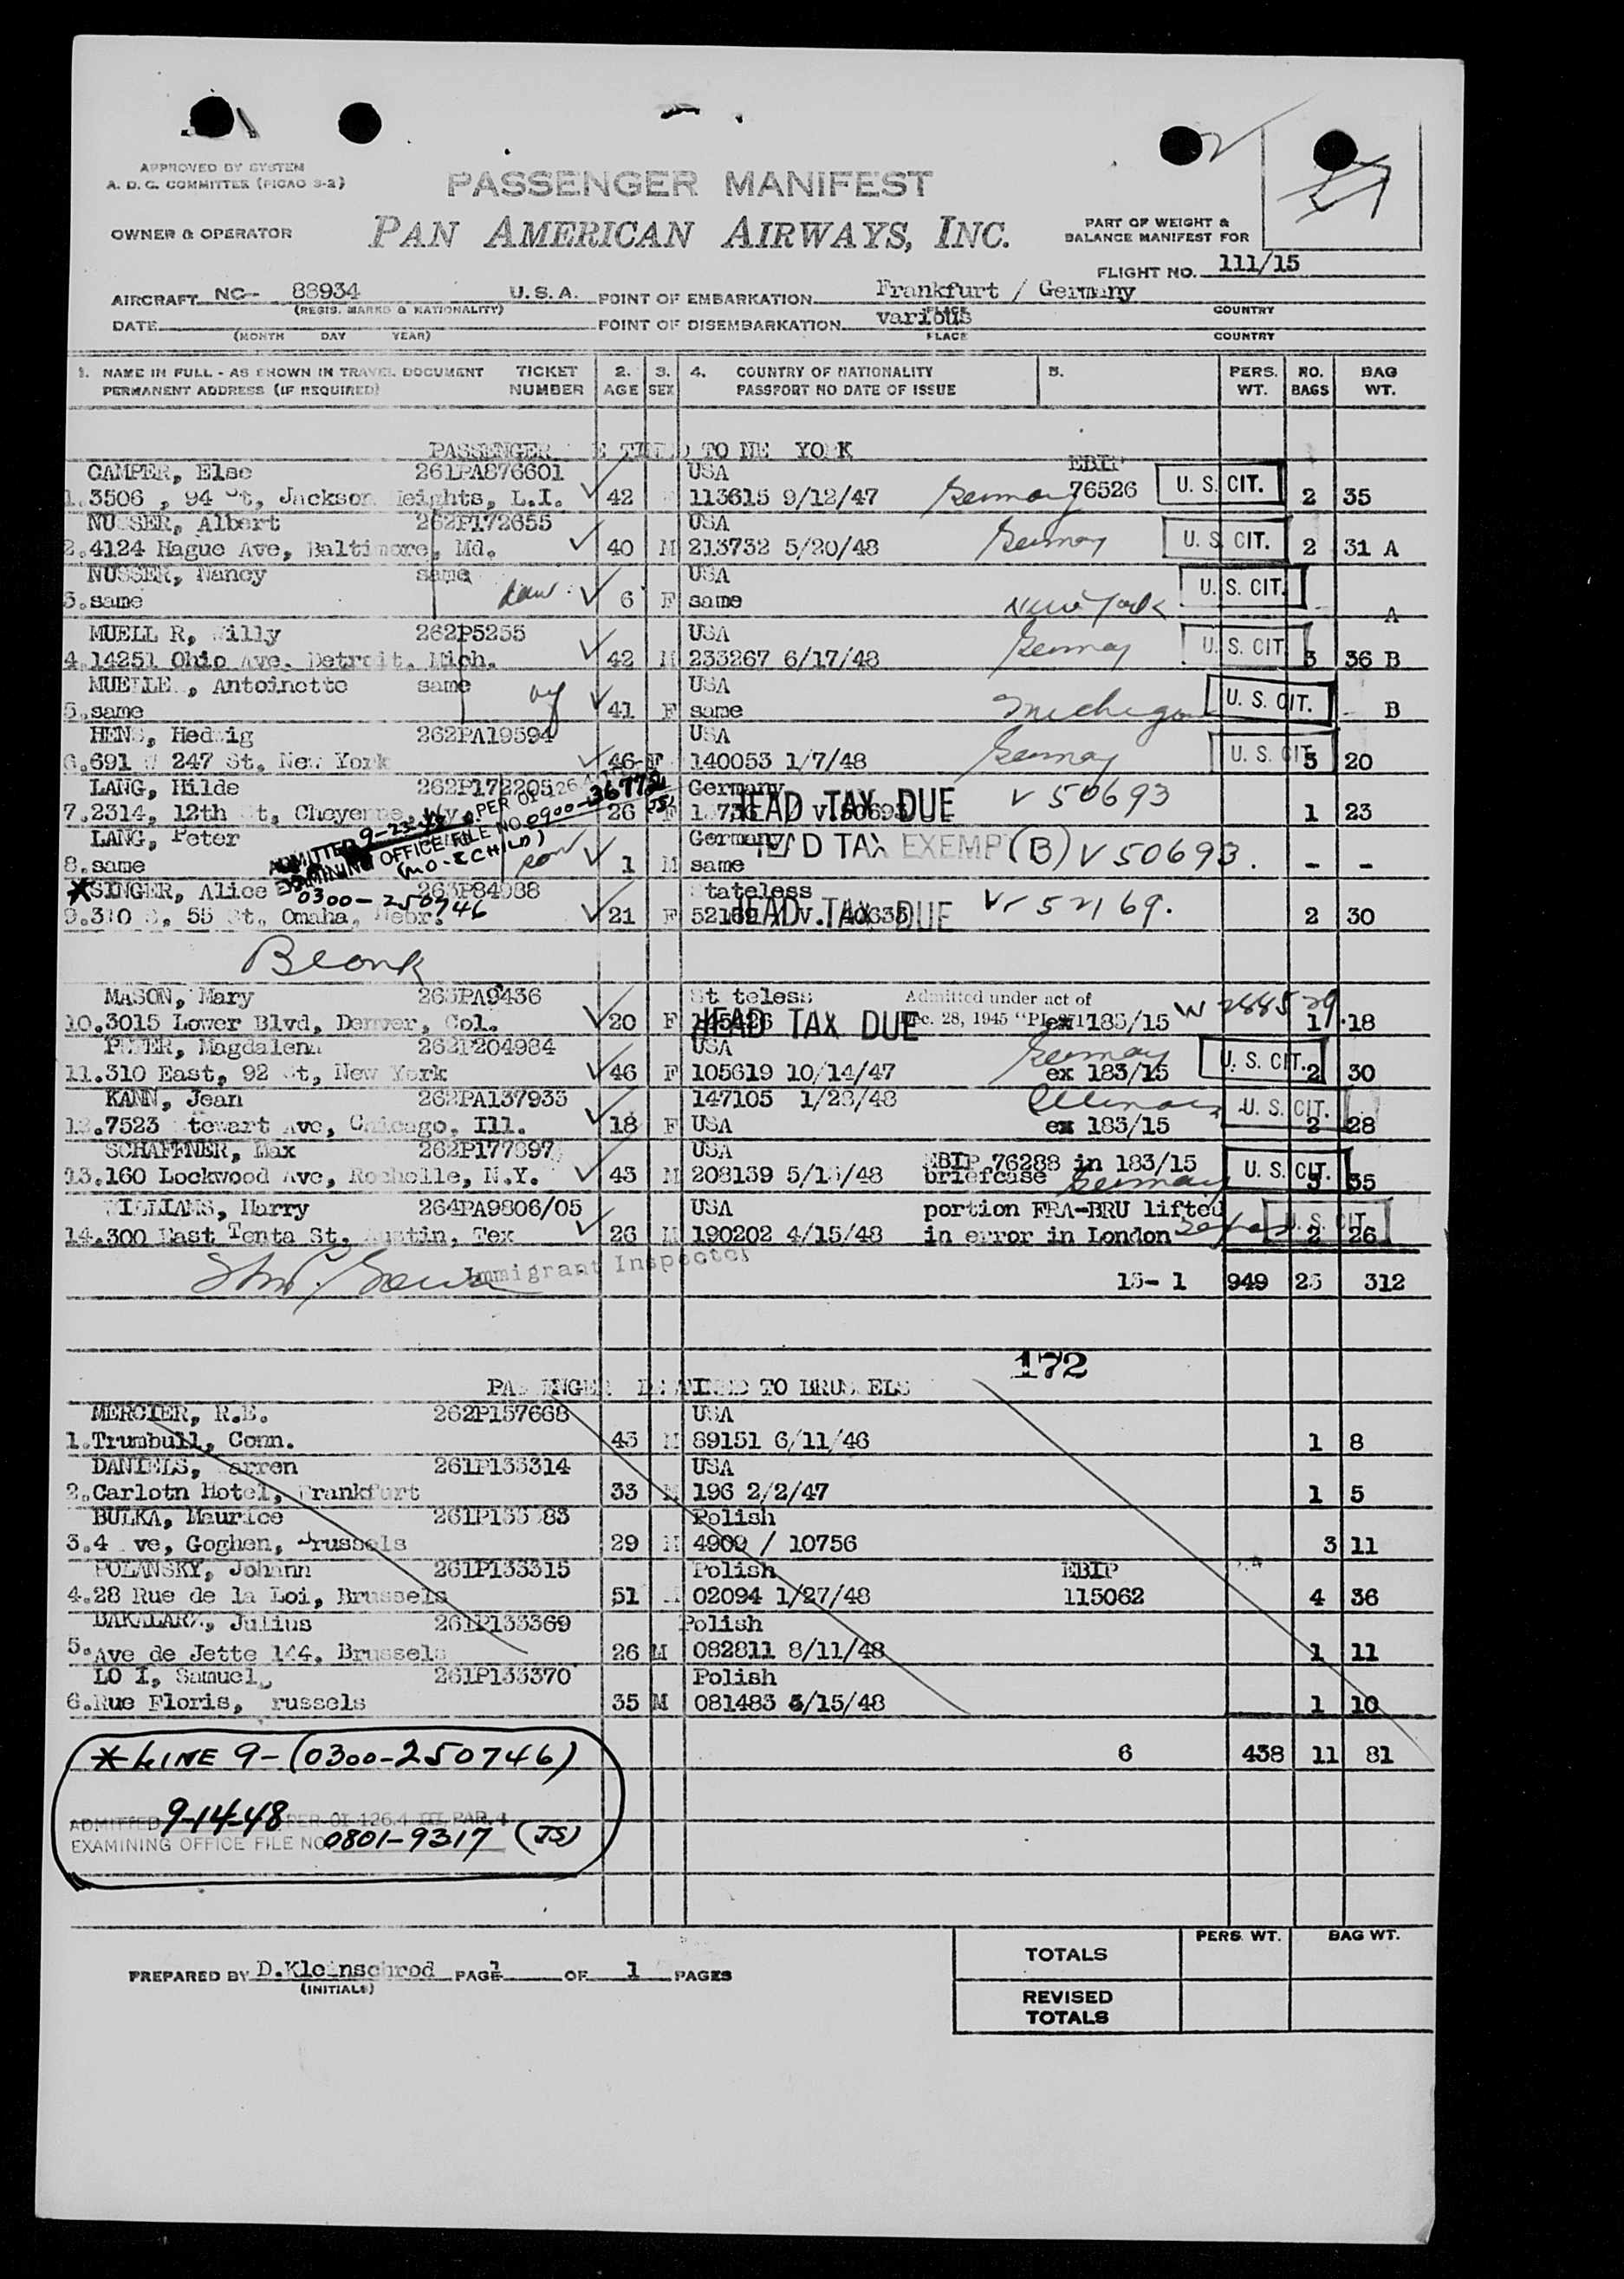 APPROVED BY SYSTEM
A. D. C. COMMITTEE (PICAO 3-2)
PASSENGER MANIFEST
OWNER & OPERATOR
PAN AMERICAN AIRWAYS, INC.
PART OF WEIGHT &
BALANCE MANIFEST FOR
FLIGHT NO. 111/15
AIRCRAFT NC- 88934 U.S.A. POINT OF EMBARKATION Frankfurt / Germany
(REGIS. MARKS & NATIONALITY) PLACE COUNTRY
DATE POINT OF DISEMBARKATION various
(MONTH DAY YEAR) PLACE COUNTRY
1. NAME IN FULL - AS SHOWN IN TRAVEL DOCUMENT TICKET 2. 3. 4. COUNTRY OF NATIONALITY 5. PERS. NO. BAG
PERMANENT ADDRESS (IF REQUIRED) NUMBER AGE SEX PASSPORT NO DATE OF ISSUE WT. BAGS WT.
PASSENGER TO NE YO K
CAMPER, Else 261PA876601 USA EBIP
1.3506 , 94 St, Jackson Heights, L.I. 42 113615 9/12/47 Germany 76526 U. S. CIT. 2 35
NUSSER, Albert 262P172655 USA
2.4124 Hague Ave, Baltimore, Md. 40 M 213732 5/20/48 Germany U. S. CIT. 2 31 A
NUSSER, Nancy same USA
3.same dau. 6 F same New York U. S. CIT. - A
MUELL R, Willy 262P5255 USA
4.14251 Ohio Ave. Detroit, Mich. 42 M 233267 6/17/48 Germany U. S. CIT 3 36 B
MUELLE , Antoinette same USA
5.same 41 F same Michigan U. S. CIT. - B
HENS, Hedwig 262PA19594 USA
6.691 W 247 St. New York 46 F 140053 1/7/48 Germany U. S. CIT. 3 20
LANG, Hilde 262P172205 Germany
7.2314, 12th St, Cheyenne, Wy. 26 F HEAD TAX DUE V 50693 1 23
ADMITTED 9-23-48 PER OI 126.4
EXAMINING OFFICE FILE NO. 0900-36772 (JS)
(MO. & CHILD)
LANG, Peter Germany
8.same son 1 M same HEAD TAX EXEMP (B) V 50693. - -
*SINGER, Alice 263P84988 Stateless
0300-250746
9.310 S, 55 St, Omaha, Nebr. 21 F HEAD TAX DUE 2 30
MASON, Mary 263PA9436 St teless Admitted under act of
10.3015 Lower Blvd, Denver, Col. 20 F HEAD TAX DUE Dec. 28, 1945 ex 183/15 1 18
PETER, Magdalena 262P204984 USA Germany
11.310 East, 92 St, New York 46 F 105619 10/14/47 ex 183/15 U. S. CIT. 2 30
KANN, Jean 262PA137935 147105 1/23/48 Illinois
12.7523 Stewart Ave, Chicago, Ill. 18 F USA ex 183/15 U. S. CIT. 2 28
SCHAFFNER, Max 262P177897 USA EBIP 76288 in 183/15
13.160 Lockwood Ave, Rochelle, N.Y. 43 M 208139 briefcase Germany U. S. CIT. 3 35
WILLIAMS, Harry 264PA9806/05 USA portion FRA-BRU lifted
14.300 East Tenta St. Austin, Tex 26 M 190202 4/15/48 in error in London Texas U. S. CIT 2 26
Immigrant Inspector
15- 1 949 25 312
172
PASSENGER DESTINED TO BRUSSELS
MERCIER, R.E. 262P157668 USA
1.Trumbull, Conn. 43 M 89151 6/11/46 1 8
DANIELS, Warren 261P133314 USA
2.Carlotn Hotel, Frankfurt 33 M 196 2/2/47 1 5
BULKA, Maurice Polish
3.4 ve, Goghen, Brussels 29 M 4909 / 10756 3 11
POLANSKY, Johann 261P133315 Polish EBIP
4.28 Rue de la Loi, Brussels 51 02094 1/27/48 115062 4 36
BAKALARZ, Julius 261P133369 Polish
5.Ave de Jette 144, Brussels 26 M 082811 8/11/48 1 11
LO I, Samuel, 261P133370 Polish
6.Rue Floris, russels 35 M 081483 /15/48 1 10
6 438 11 81
* LINE 9-(0300-250746)
ADMITTED 9-14-48 PER OI 126.4 III PAR. 4
EXAMINING OFFICE FILE NO 0801-9317 (JS)
PERS. WT. BAG WT.
TOTALS
PREPARED BY D.Kleinschrod PAGE 1 OF 1 PAGES
(INITIALS)
REVISED
TOTALS